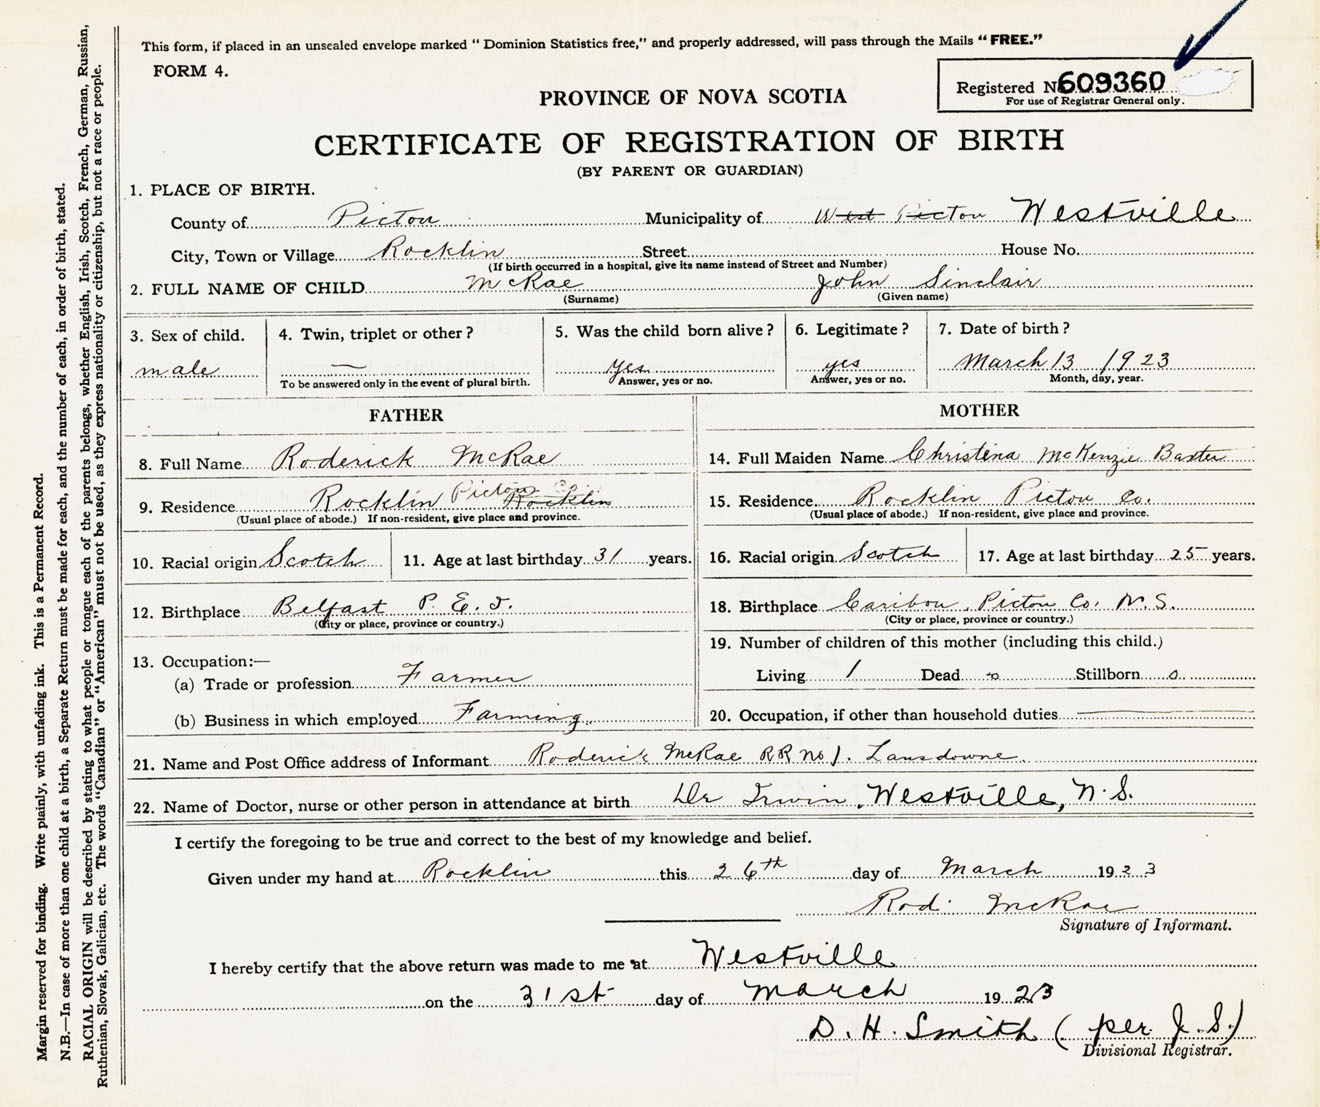 This form, if placed in an unsealed envelope marked "Dominion Statistics free," and properly addressed, will pass through the Mails "FREE."
FORM 4.
Registered N 609360
For use of Registrar General only.
PROVINCE OF NOVA SCOTIA
CERTIFICATE OF REGISTRATION OF BIRTH
(BY PARENT OR GUARDIAN)
1. PLACE OF BIRTH.
County of Pictou Municipality of West Pictou Westville
City, Town or Village Rocklin Street House No.
(If birth occurred in a hospital, give its name instead of Street and Number)
2. FULL NAME OF CHILD McRae John Sinclair
(Surname) (Given name)
3. Sex of child. 4. Twin, triplet or other? 5. Was the child born alive? 6. Legitimate? 7. Date of birth?
male — yes yes March 13 1923
To be answered only in the event of plural birth. Answer, yes or no. Answer, yes or no. Month, day, year.
FATHER
8. Full Name Roderick McRae
9. Residence Rocklin Pictou Co. Rocklin
(Usual place of abode.) If non-resident, give place and province.
10. Racial origin Scotch 11. Age at last birthday 31 years.
12. Birthplace Belfast P. E. I.
(City or place, province or country.)
13. Occupation:—
(a) Trade or profession Farmer
(b) Business in which employed Farming
MOTHER
14. Full Maiden Name Christena McKenzie Baxter
15. Residence Rocklin Pictou Co.
(Usual place of abode.) If non-resident, give place and province.
16. Racial origin Scotch 17. Age at last birthday 25 years.
18. Birthplace Caribou, Pictou Co. N. S.
(City or place, province or country.)
19. Number of children of this mother (including this child.)
Living 1 Dead o Stillborn o
20. Occupation, if other than household duties
21. Name and Post Office address of Informant Roderick McRae RR No 1. Lansdowne
22. Name of Doctor, nurse or other person in attendance at birth Dr Irwin, Westville, N.S.
I certify the foregoing to be true and correct to the best of my knowledge and belief.
Given under my hand at Rocklin this 26th day of March 1923
Rod. McRae
Signature of Informant.
I hereby certify that the above return was made to me at Westville
on the 31st day of March 1923
D. H. Smith (per J. S.)
Divisional Registrar.
Margin reserved for binding. Write plainly, with unfading ink. This is a Permanent Record.
N.B.—In case of more than one child at a birth, a Separate Return must be made for each, and the number of each, in order of birth, stated.
RACIAL ORIGIN will be described by stating to what people or tongue each of the parents belongs, whether English, Irish, Scotch, French, German, Russian,
Ruthenian, Slovak, Galician, etc. The words "Canadian" or "American" must not be used, as they express nationality or citizenship, but not a race or people.